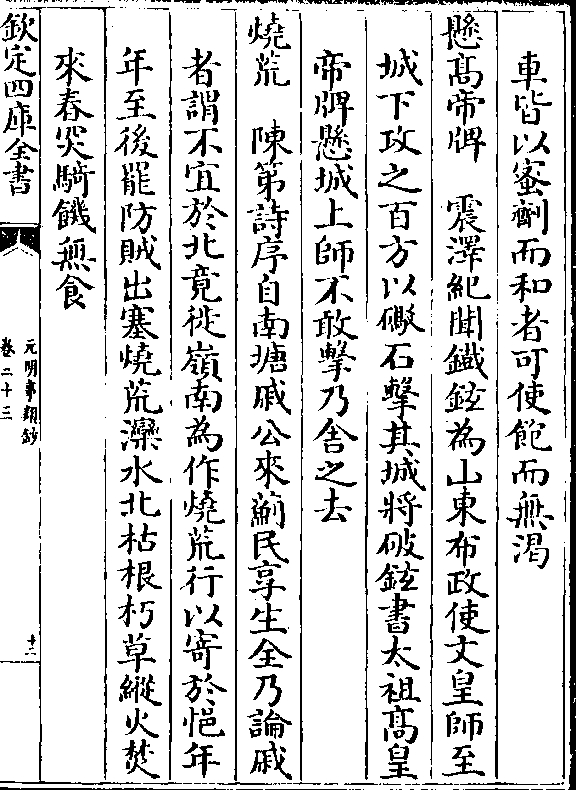 車皆以蜜劑而和者可使飽而無渴
懸髙帝牌　震澤紀聞鐵鉉為山東布政使文皇師至
城下攻之百方以礟石擊其城將破鉉書太祖髙皇
帝牌懸城上師不敢擊乃舍之去
燒荒　陳第詩序自南塘戚公來薊民享生全乃論戚
者謂不宜於北竟徙嶺南為作燒荒行以寄於悒年
年至後罷防賊出塞燒荒灤水北枯根朽草縱火焚
來春突騎饑無食
欽定四庫全書
元明事類鈔
卷二十三
十三